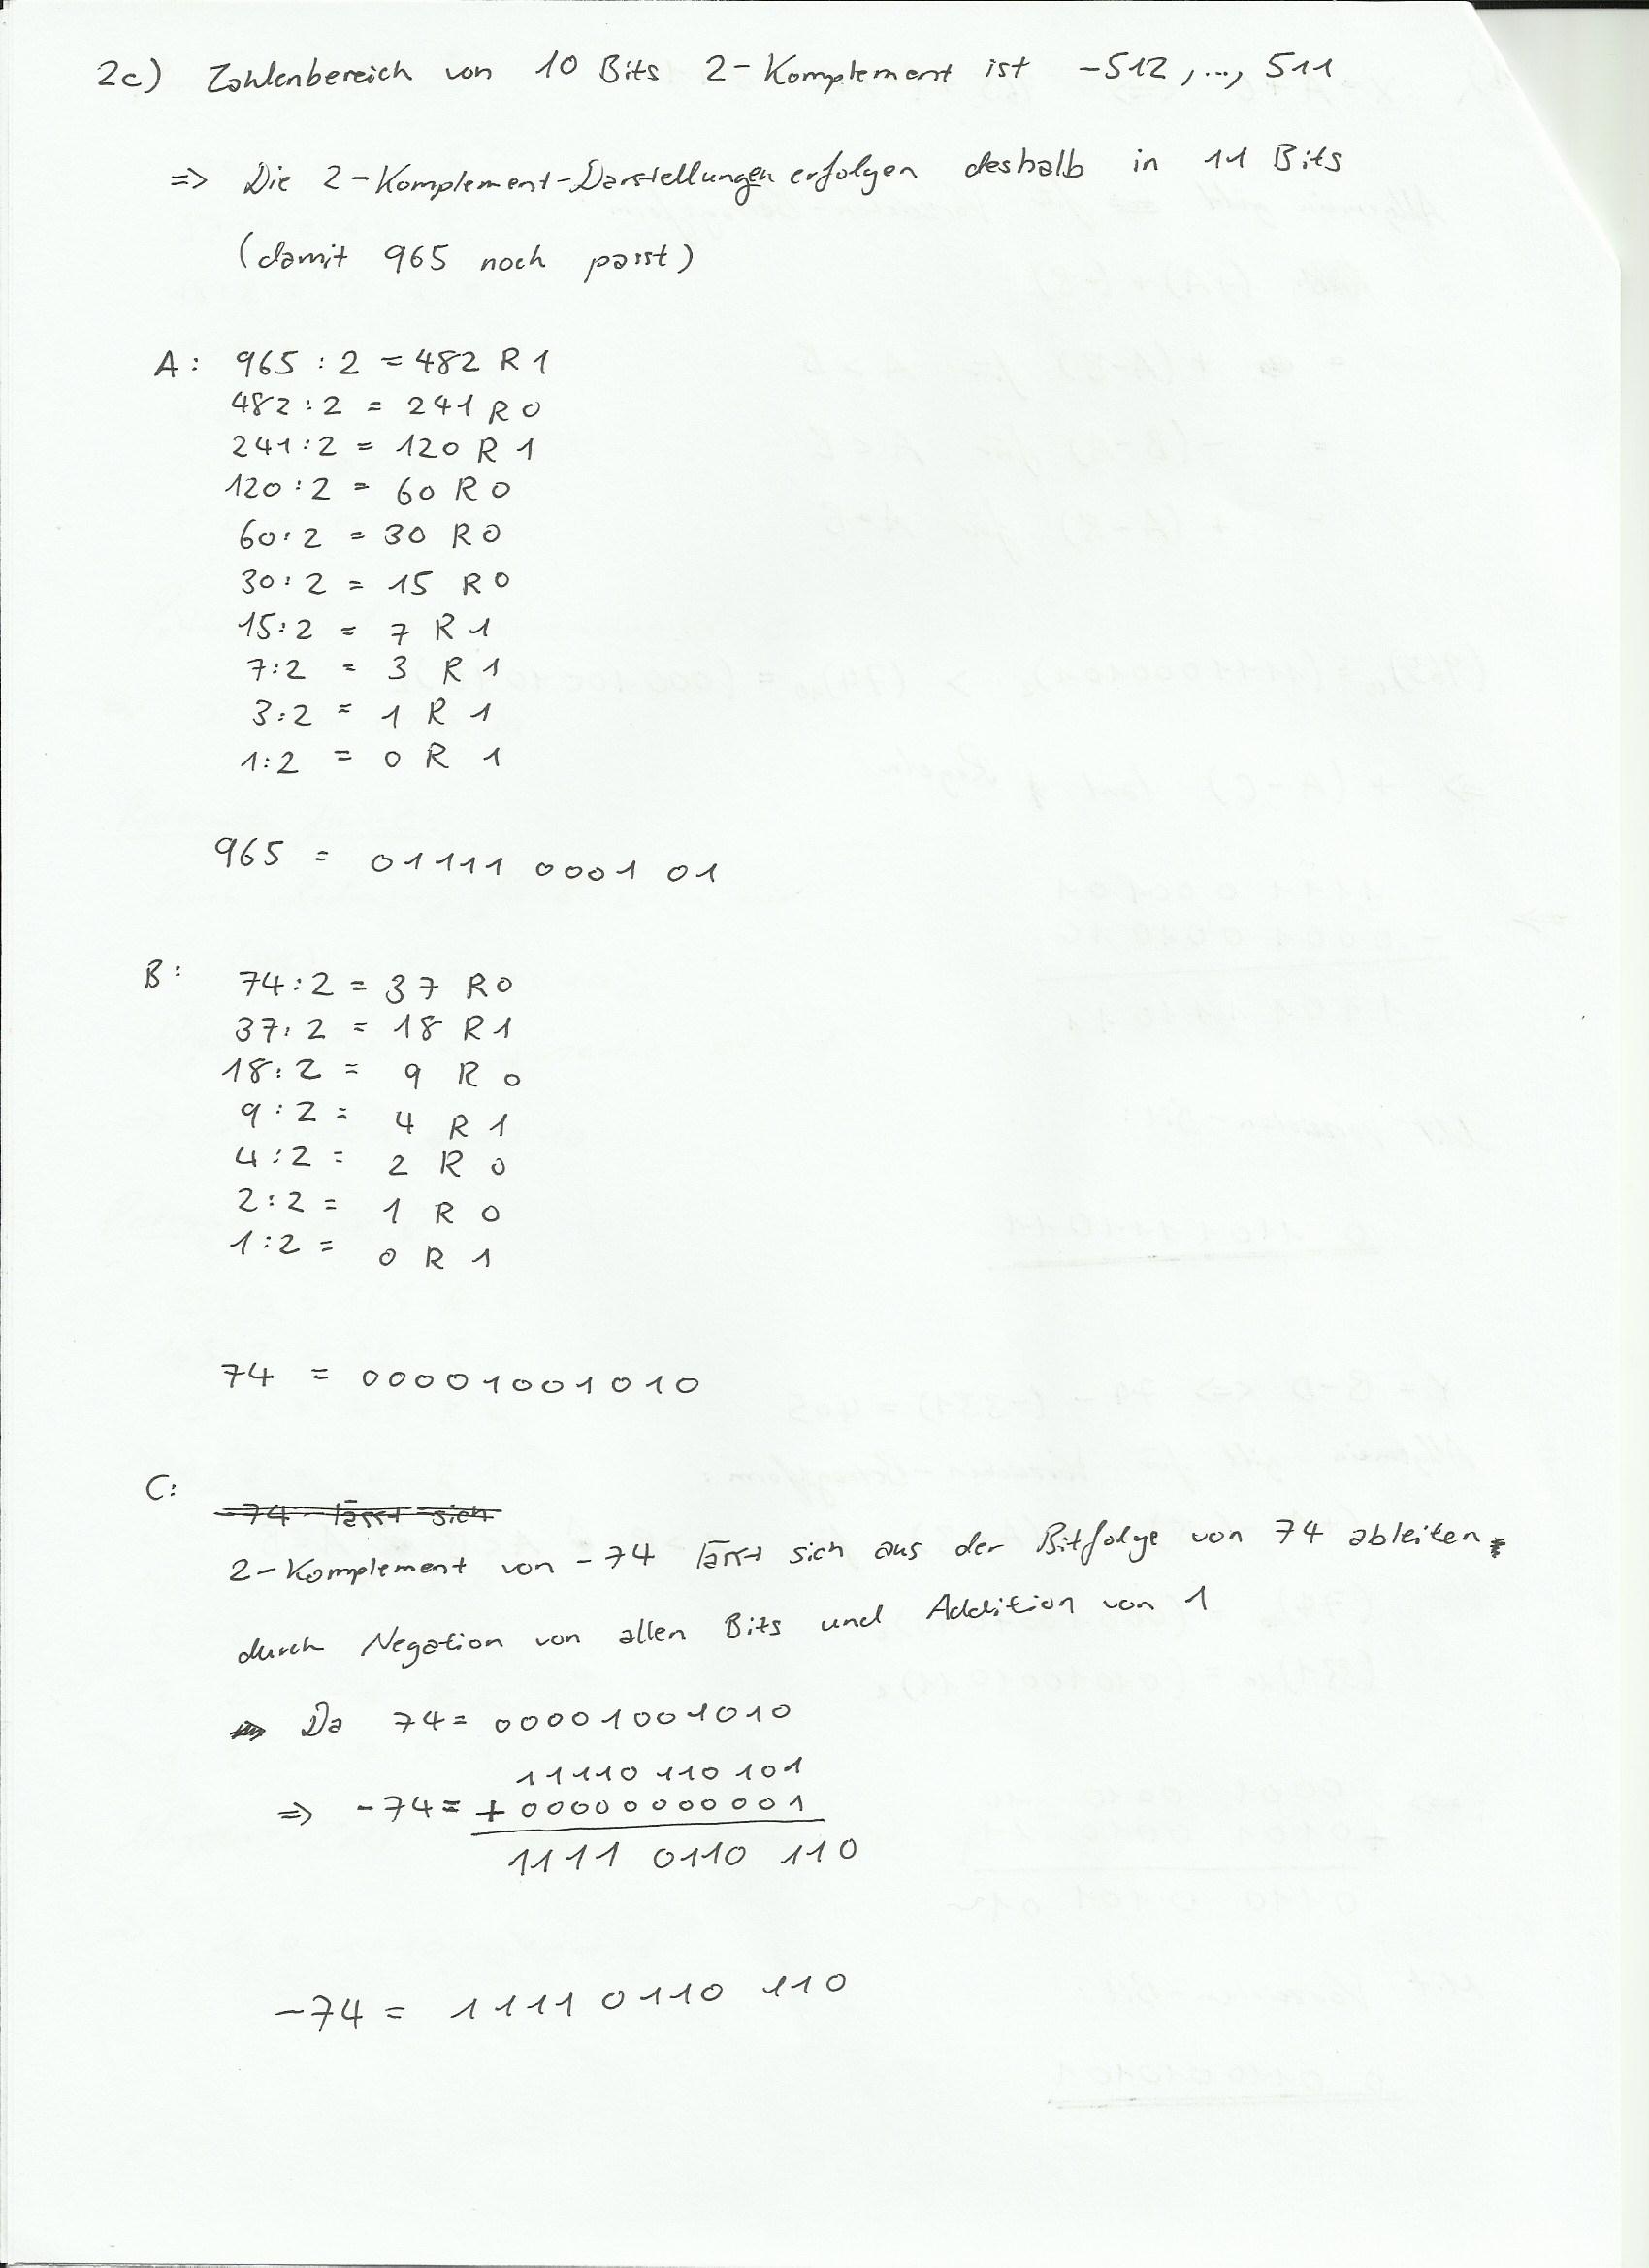 2c) Zahlenbereich von 10 Bits 2-Komplement ist -512, ..., 511
=> Die 2-Komplement-Darstellungen erfolgen deshalb in 11 Bits
(damit 965 noch passt)
A: 965 : 2 = 482 R 1
482 : 2 = 241 R 0
241 : 2 = 120 R 1
120 : 2 = 60 R 0
60 : 2 = 30 R 0
30 : 2 = 15 R 0
15 : 2 = 7 R 1
7 : 2 = 3 R 1
3 : 2 = 1 R 1
1 : 2 = 0 R 1
965 = 01111 0001 01
B: 74 : 2 = 37 R 0
37 : 2 = 18 R 1
18 : 2 = 9 R 0
9 : 2 = 4 R 1
4 : 2 = 2 R 0
2 : 2 = 1 R 0
1 : 2 = 0 R 1
74 = 00001001010
C: -74 lässt sich
2-Komplement von -74 lässt sich aus der Bitfolge von 74 ableiten
durch Negation von allen Bits und Addition von 1
Da 74 = 00001001010
11110 110 101
=> -74 = + 00000000001
1111 0110 110
-74 = 1111 0110 110